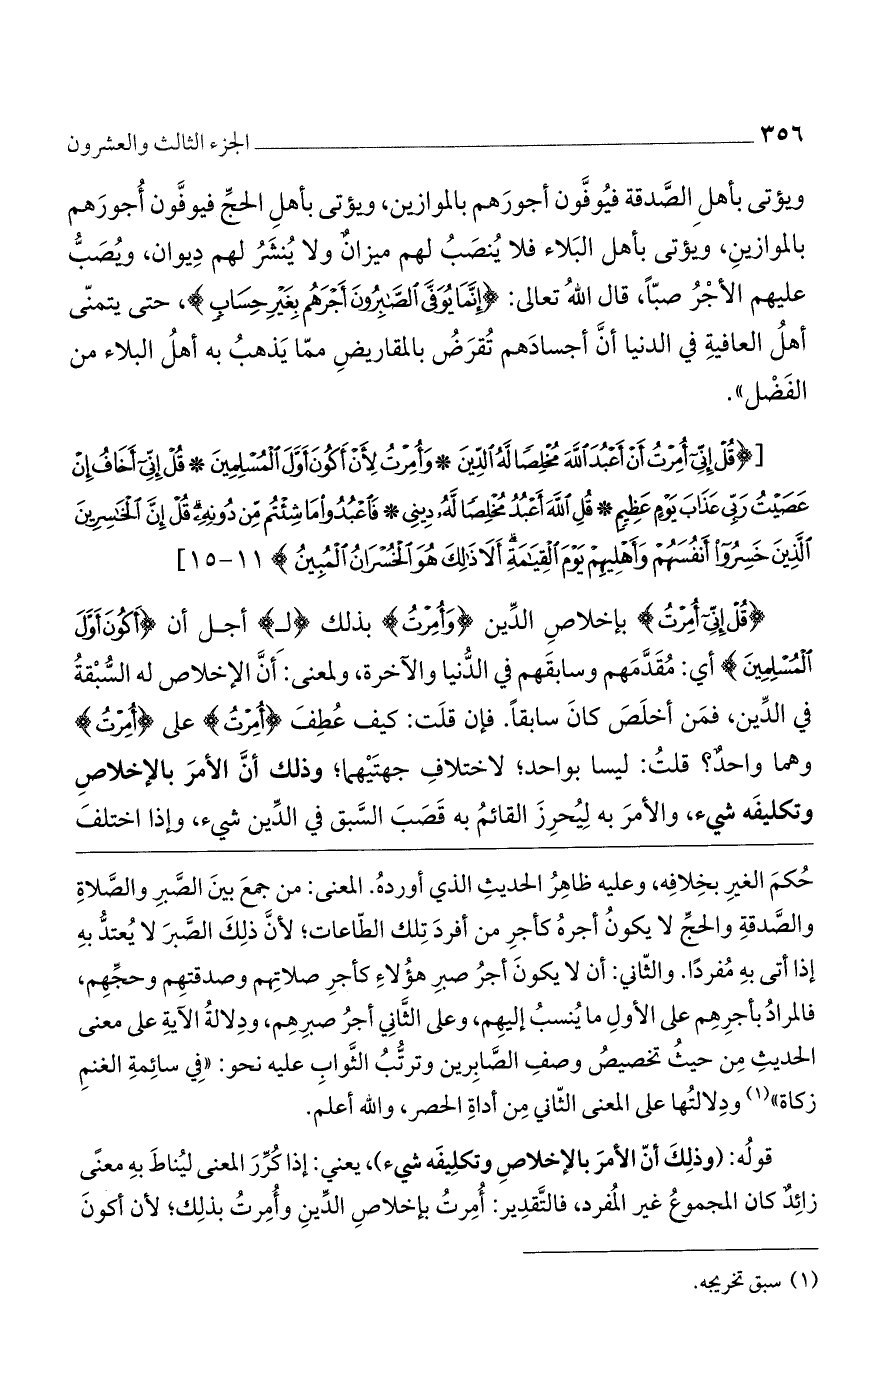 ٣٥٦ الجزء الثالث والعشرون
ويؤتى بأهلِ الصَّدقة فيُوفَّون أجورَهم بالموازين، ويؤتى بأهلِ الحجِّ فيوفَّون أُجورَهم
بالموازينِ، ويؤتى بأهل البَلاء فلا يُنصَبُ لهم ميزانٌ ولا يُنشَرُ لهم دِيوان، ويُصَبُّ
عليهم الأجْرُ صبّاً، قال اللهُ تعالى: ﴿إِنَّمَا يُوَفَّى ٱلصَّـٰبِرُونَ أَجْرَهُم بِغَيْرِ حِسَابٍ﴾، حتى يتمنّى
أهلُ العافيةِ في الدنيا أنَّ أجسادَهم تُقرَضُ بالمقاريضِ ممّا يَذهبُ به أهلُ البلاء من
الفَضْل».
[﴿قُلْ إِنِّىٓ أُمِرْتُ أَنْ أَعْبُدَ ٱللَّهَ مُخْلِصًا لَّهُ ٱلدِّينَ * وَأُمِرْتُ لِأَنْ أَكُونَ أَوَّلَ ٱلْمُسْلِمِينَ * قُلْ إِنِّىٓ أَخَافُ إِنْ
عَصَيْتُ رَبِّى عَذَابَ يَوْمٍ عَظِيمٍ * قُلِ ٱللَّهَ أَعْبُدُ مُخْلِصًا لَّهُۥ دِينِى * فَٱعْبُدُوا۟ مَا شِئْتُم مِّن دُونِهِۦۗ قُلْ إِنَّ ٱلْخَـٰسِرِينَ
ٱلَّذِينَ خَسِرُوٓا۟ أَنفُسَهُمْ وَأَهْلِيهِمْ يَوْمَ ٱلْقِيَـٰمَةِۗ أَلَا ذَٰلِكَ هُوَ ٱلْخُسْرَانُ ٱلْمُبِينُ﴾ ١١-١٥]
﴿قُلْ إِنِّىٓ أُمِرْتُ﴾ بإخلاصِ الدِّين ﴿وَأُمِرْتُ﴾ بذلك ﴿لـِ﴾ أجـل أن ﴿أَكُونَ أَوَّلَ
ٱلْمُسْلِمِينَ﴾ أي: مُقَدَّمَهم وسابقَهم في الدُّنيا والآخرة، ولمعنى: أنَّ الإخلاص له السُّبْقةُ
في الدِّين، فمَن أخلَصَ كانَ سابقاً. فإن قلَت: كيف عُطِفَ ﴿أُمِرْتُ﴾ على ﴿أُمِرْتُ﴾
وهما واحدٌ؟ قلتُ: ليسا بواحد؛ لاختلافِ جهتَيْهما؛ وذلك أنَّ الأمرَ بالإخلاصِ
وتكليفَه شيء، والأمرَ به لِيُحرِزَ القائمُ به قَصَبَ السَّبق في الدِّين شيء، وإذا اختلفَ
حُكمَ الغيرِ بخِلافِه، وعليه ظاهِرُ الحديثِ الذي أوردهُ. المعنى: من جمعَ بينَ الصَّبرِ والصَّلاةِ
والصَّدقةِ والحجِّ لا يكونُ أجرهُ كأجرِ من أفردَ تِلك الطّاعات؛ لأنَّ ذلِكَ الصَّبرَ لا يُعتدُّ بهِ
إذا أتى بهِ مُفردًا. والثّاني: أن لا يكونَ أجرُ صبرِ هؤُلاءِ كأجرِ صلاتِهم وصدقتِهِم وحجِّهِم،
فالمرادُ بأجرِهِم على الأولِ ما يُنسبُ إليهِم، وعلى الثَّانِي أجرُ صبرِهِم، ودِلالةُ الآيةِ على معنى
الحديثِ مِن حيثُ تخصيصُ وصفِ الصَّابِرين وترتُّبُ الثَّوابِ عليه نحو: «فِي سائِمةِ الغنمِ
زكاة»(١) ودِلالتُها على المعنى الثّاني مِن أداةِ الحصر، والله أعلم.
قولُه: (وذلِكَ أنّ الأمرَ بالإخلاصِ وتكلِيفَه شيء)، يعني: إذا كُرِّرَ المعنى ليُناطَ بِهِ معنًى
زائِدٌ كان المجموعُ غير المُفرد، فالتَّقدِير: أُمِرتُ بإخلاصِ الدِّينِ وأُمِرتُ بذلِك؛ لأن أكونَ
(١) سبق تخريجه.